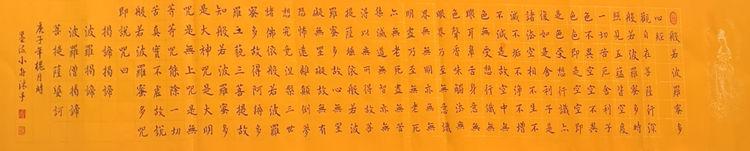 般若波羅蜜多
心經
觀自在菩薩行深
般若波羅蜜多時
照見五蘊皆空度
一切苦厄舍利子
色不異空空不異
空色即是空空即
是色受想行識亦
復如是舍利子是
諸法空相不生不
滅不垢不淨不增
不減是故空中無
色無受想行識無
眼耳鼻舌身意無
色聲香味觸法無
眼界乃至無意識
界無無明亦無無
明盡乃至無老死
亦無老死盡無苦
集滅道無智亦無
得以無所得故菩
提薩埵依般若波
羅蜜多故心無罣
礙無罣礙故無有
恐怖遠離顛倒夢
想究竟涅槃三世
諸佛依般若波羅
蜜多故得阿耨多
羅三藐三菩提故
知般若波羅蜜多
是大神咒是大明
咒是無上咒是無
等等咒能除一切
苦真實不虛故說
般若波羅蜜多咒
即說咒曰
揭諦揭諦
波羅揭諦
波羅僧揭諦
菩提薩婆訶
庚子年桃月時